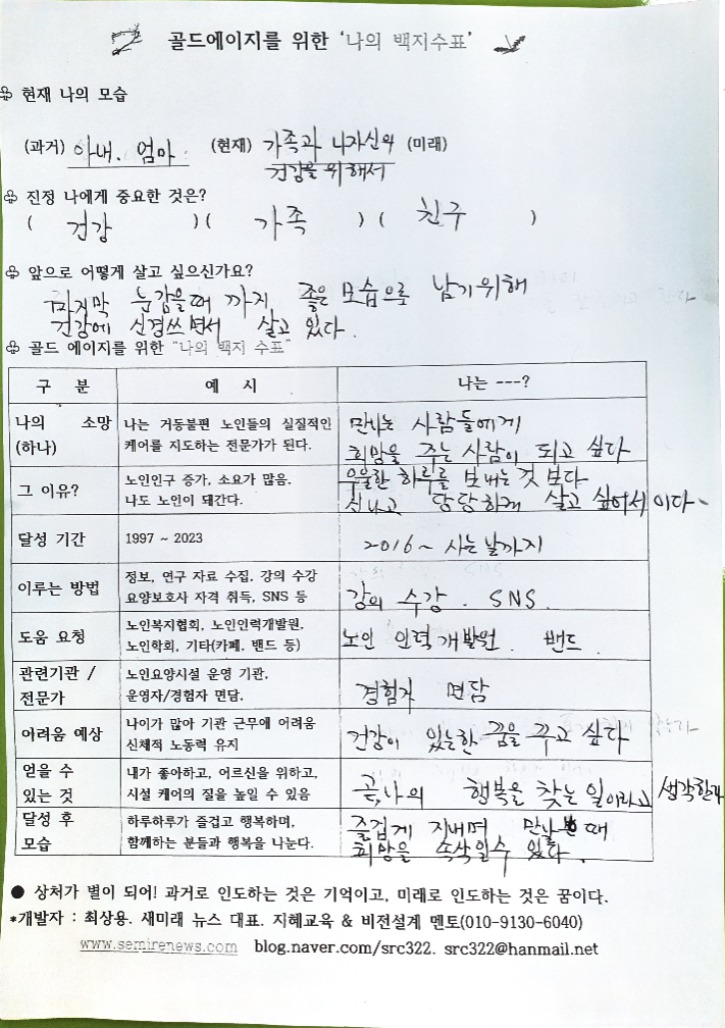 골드에이지를 위한 '나의 백지수표'
현재 나의 모습
(과거) 아내. 엄마. (현재) 가족과 나자신의 (미래)
건강을 위해서
진정 나에게 중요한 것은?
( 건강 ) ( 가족 ) ( 친구 )
앞으로 어떻게 살고 싶으신가요?
마지막 눈감을때 까지 좋은 모습으로 남기위해
건강에 신경쓰면서 살고 있다.
골드 에이지를 위한 "나의 백지 수표"
구 분 예 시 나는 ---?
나의 소망 (하나)
나는 거동불편 노인들의 실질적인
케어를 지도하는 전문가가 된다.
만나는 사람들에게
희망을 주는 사람이 되고 싶다
그 이유?
노인인구 증가, 소요가 많음.
나도 노인이 돼간다.
우울한 하루를 보내는것 보다
신나고 당당하게 살고 싶어서 이다
달성 기간 1997 ~ 2023 2016 ~ 사는날까지
이루는 방법
정보, 연구 자료 수집, 강의 수강
요양보호사 자격 취득, SNS 등
강의 수강. SNS.
도움 요청
노인복지협회, 노인인력개발원,
노인학회, 기타(카페, 밴드 등)
노인 인력개발원. 밴드.
관련기관 /
전문가
노인요양시설 운영 기관,
운영자/경험자 면담.
경험자 면담
어려움 예상
나이가 많아 기관 근무에 어려움
신체적 노동력 유지
건강이 있는한 꿈을 꾸고 싶다
얻을 수
있는 것
내가 좋아하고, 어르신을 위하고,
시설 케어의 질을 높일 수 있음
곧, 나의 행복을 찾는 일이라고 생각한다
달성 후
모습
하루하루가 즐겁고 행복하며,
함께하는 분들과 행복을 나눈다.
즐겁게 지내며 만날 때
희망을 속삭일수 있다.
● 상처가 별이 되어! 과거로 인도하는 것은 기억이고, 미래로 인도하는 것은 꿈이다.
*개발자 : 최상용. 새미래 뉴스 대표. 지혜교육 & 비전설계 멘토(010-9130-6040)
www.semirenews.com blog.naver.com/src322. src322@hanmail.net